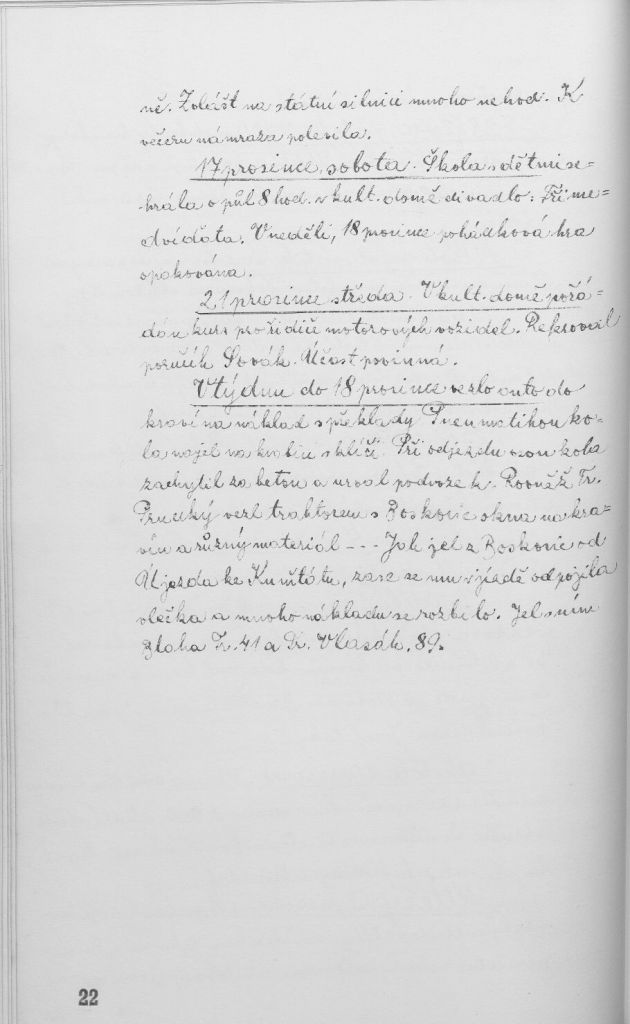 ně. Zvlášť na státní silnici mnoho nehod. K
večeru námraza polevila.
17 prosince, sobota. Škola s dětmi se-
hrála o půl 8 hod. v kult. domě divadlo: Tři me=
dvíďata. V neděli, 18 prosince pohádková hra
opakována.
21 prosince středa. V kult. domě pořá=
dán kurs pro řidiče motorových vozidel. Referoval
poručík Sovák. Účast povinná.
V týdnu do 18 prosince vezlo auto do
kravína náklad s překlady. Pneumatikou ko-
la najel na krabici s klíči. Při odjezdu
zachytil za beton a urval podvozek. Rovněž Fr.
Prucký vezl traktorem s Boskovic okna na kra=
vín a různý materiál - - - Jak jel z Boskovic od
Újezda ke Kunštátu, zase se mu v jízdě odpojila
vlečka a mnoho nákladu se rozbilo. Jel s ním
Bloha Fr. 41 a Fr. Vlasák. 89.
22